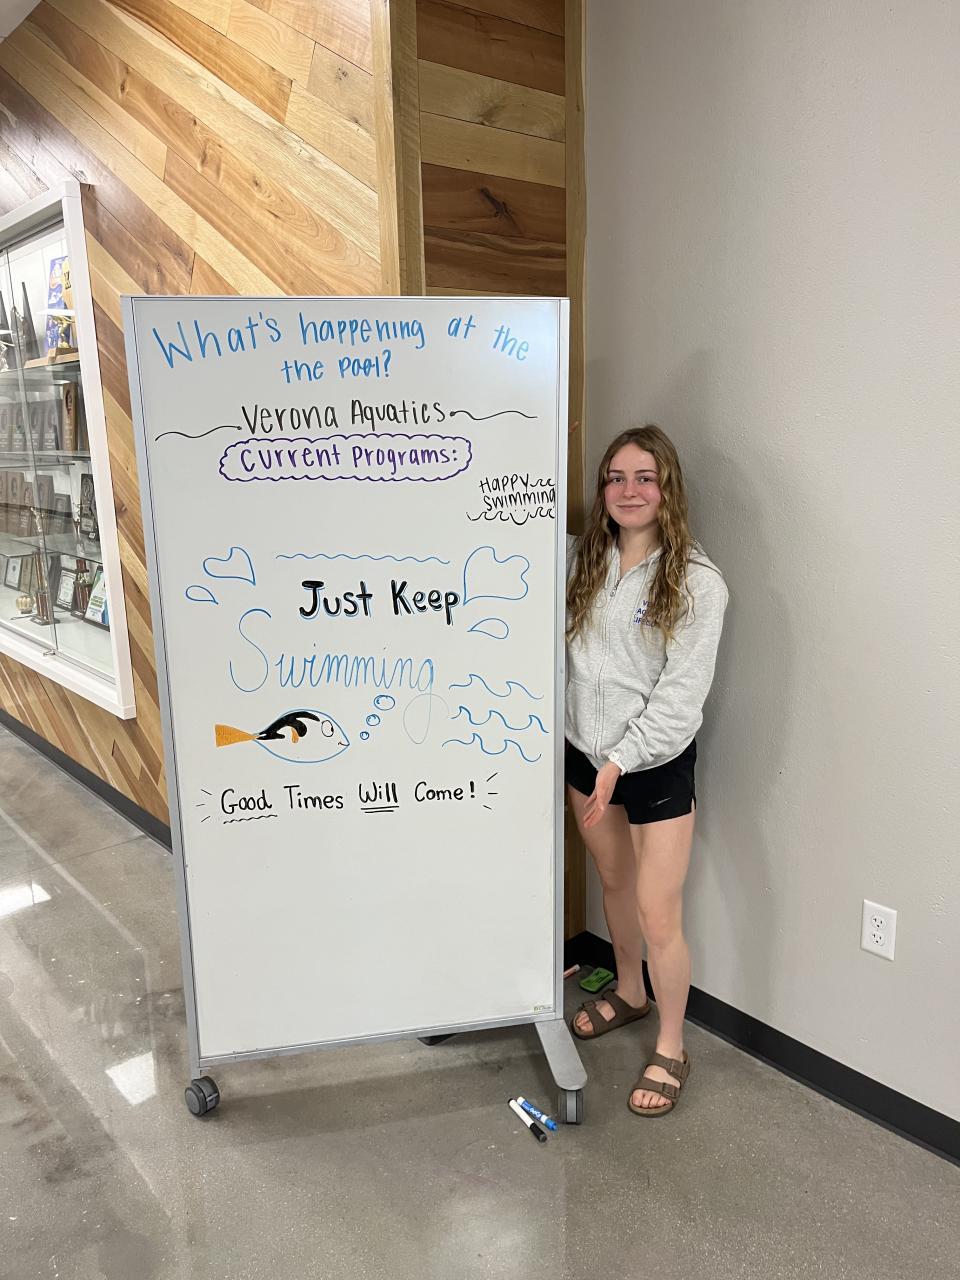 What's happening at the
the pool?
Verona Aquatics
Current Programs:
HAPPY
SWIMMING
Just Keep
Swimming
Good Times Will Come!